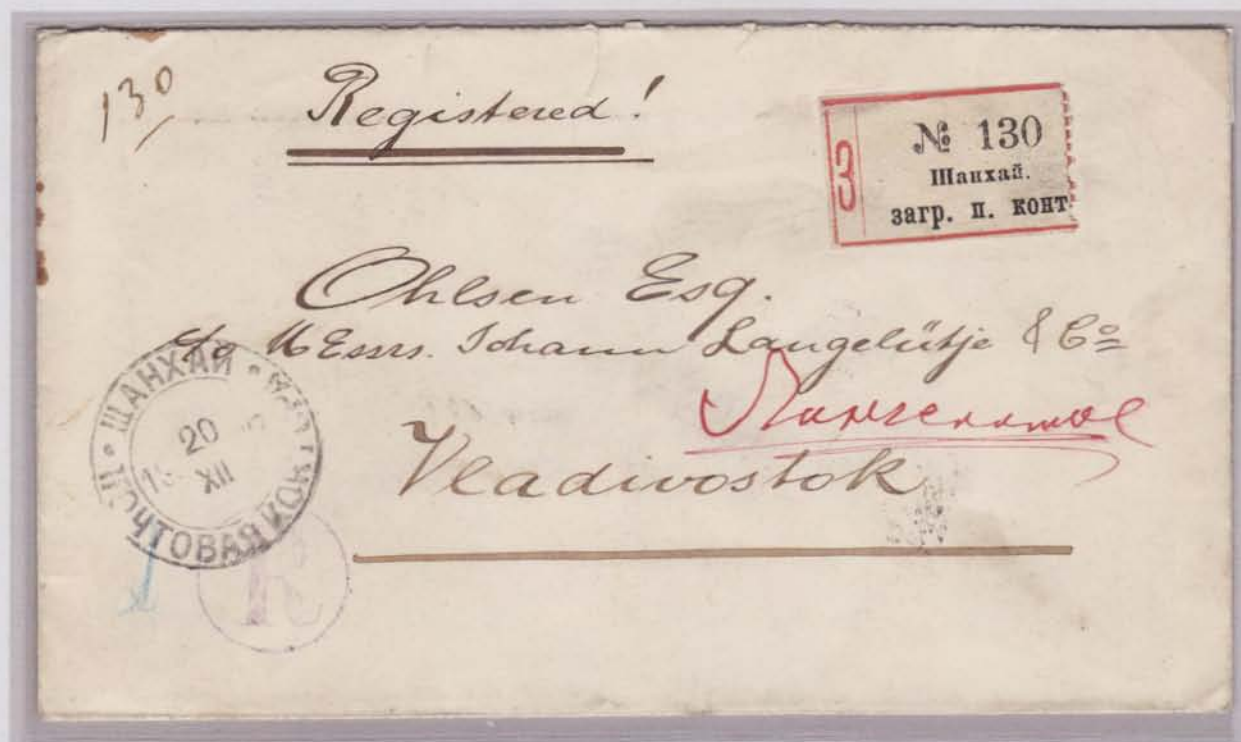 130
Registered!
З
№ 130
Шанхай.
загр. п. конт
Ohlsen Esq.
c/o Messrs. Johann Langelütje & Co
Vladivostok
ШАНХАЙ
ПОЧТОВАЯ КОНТ
20
XII
R